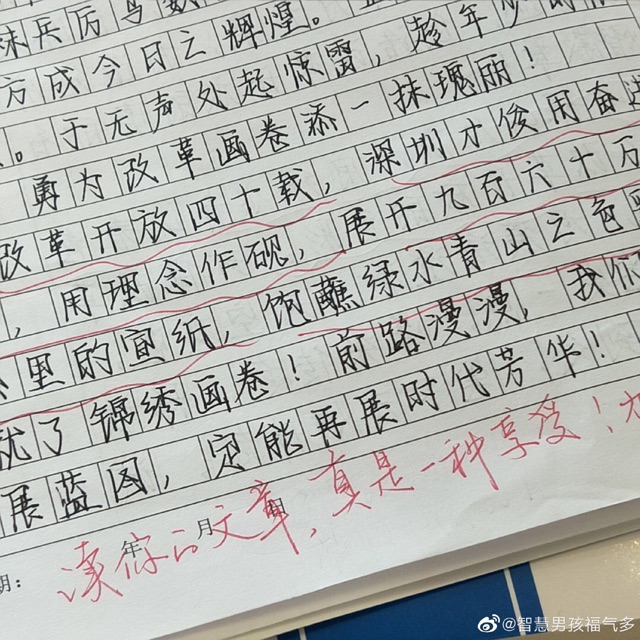 秣兵厉马
方成今日之辉煌。
。于无声处起惊雷，趁年少
勇为改革画卷添一抹瑰丽！
改革开放四十载，深圳才俊用奋
，用理念作砚，展开九百六十万
公里的宣纸，饱蘸绿水青山之色
就了锦绣画卷！前路漫漫，我们
展蓝图，定能再展时代芳华！
年 月
期：
读你的文章，真是一种享受！
@智慧男孩福气多